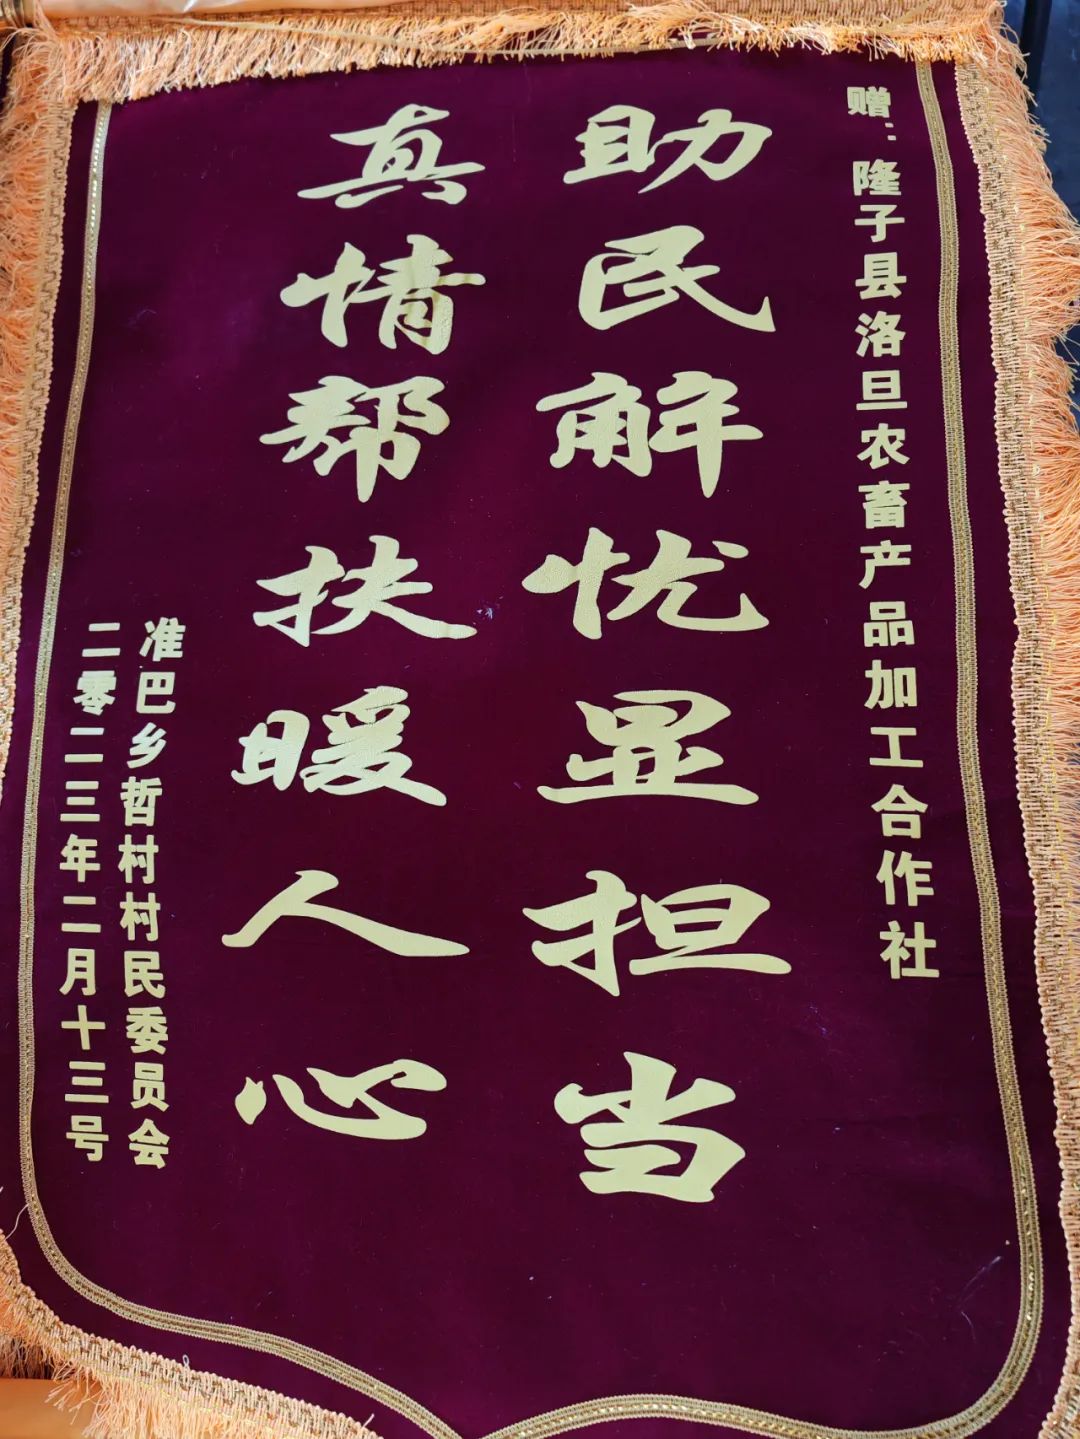 赠：隆子县洛旦农畜产品加工合作社
助民解忧显担当
真情帮扶暖人心
准巴乡哲村村民委员会
二零二三年二月十三号